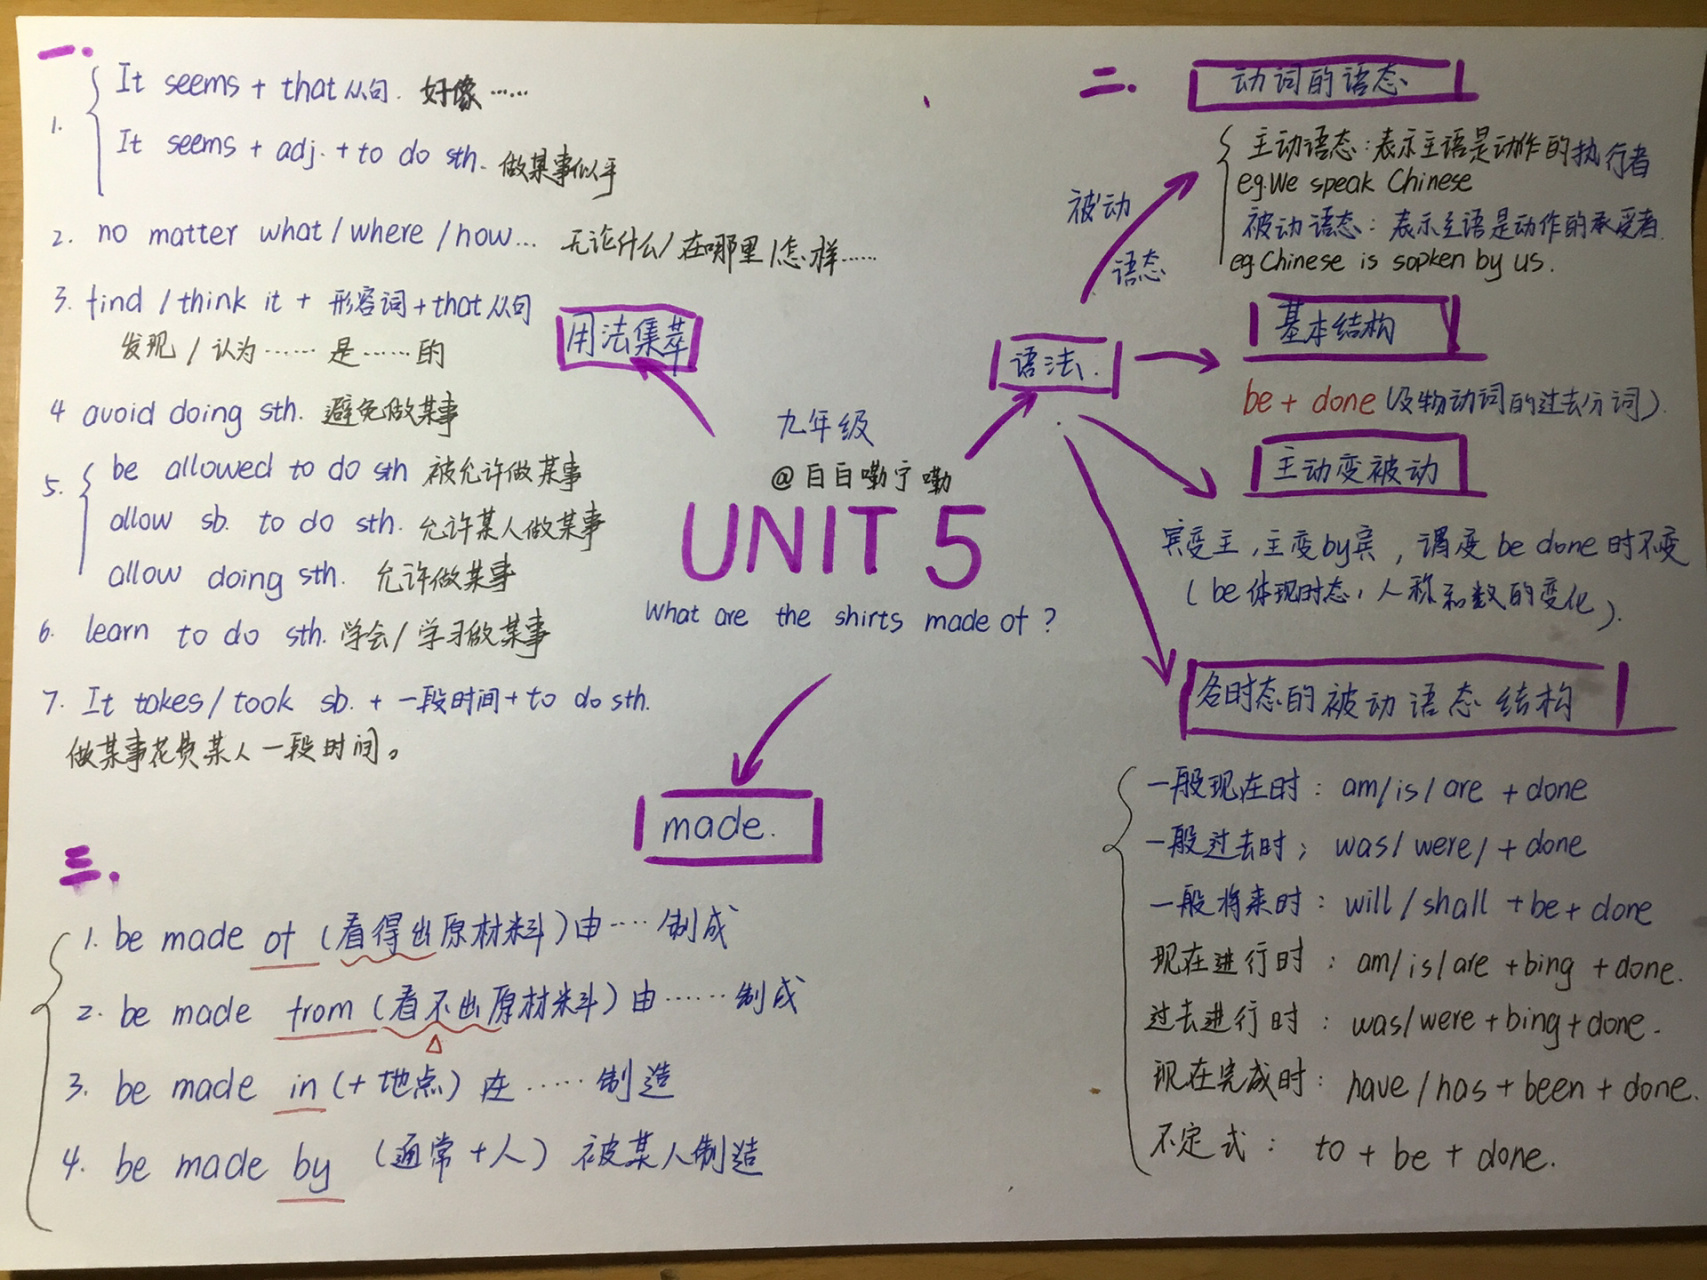 一.
1. It seems + that从句. 好像……
It seems + adj. + to do sth. 做某事似乎
2. no matter what / where / how... 无论什么/在哪里/怎样……
3. find / think it + 形容词 + that从句
发现 / 认为…… 是……的
4 avoid doing sth. 避免做某事
5. be allowed to do sth 被允许做某事
allow sb. to do sth. 允许某人做某事
allow doing sth. 允许做某事
6. learn to do sth. 学会/学习做某事
7. It takes / took sb. + 一段时间 + to do sth.
做某事花费某人一段时间。
用法集萃
九年级
@白白嘞宁嘞
UNIT 5
What are the shirts made of ?
made.
语法.
被动
语态
二. 动词的语态
主动语态:表示主语是动作的执行者
eg.We speak Chinese
被动语态:表示主语是动作的承受者.
eg.Chinese is sopken by us.
基本结构
be + done (及物动词的过去分词).
主动变被动
宾变主,主变by宾,谓变 be done 时不变
(be体现时态,人称和数的变化).
各时态的被动语态结构
一般现在时: am/is/are + done
一般过去时; was/were/ + done
一般将来时: will/shall + be + done
现在进行时: am/is/are + bing + done.
过去进行时: was/were + bing + done.
现在完成时: have/has + been + done.
不定式: to + be + done.
三.
1. be made of (看得出原材料)由……制成
2. be made from (看不出原材料)由……制成
3. be made in (+地点)在……制造
4. be made by (通常+人)被某人制造